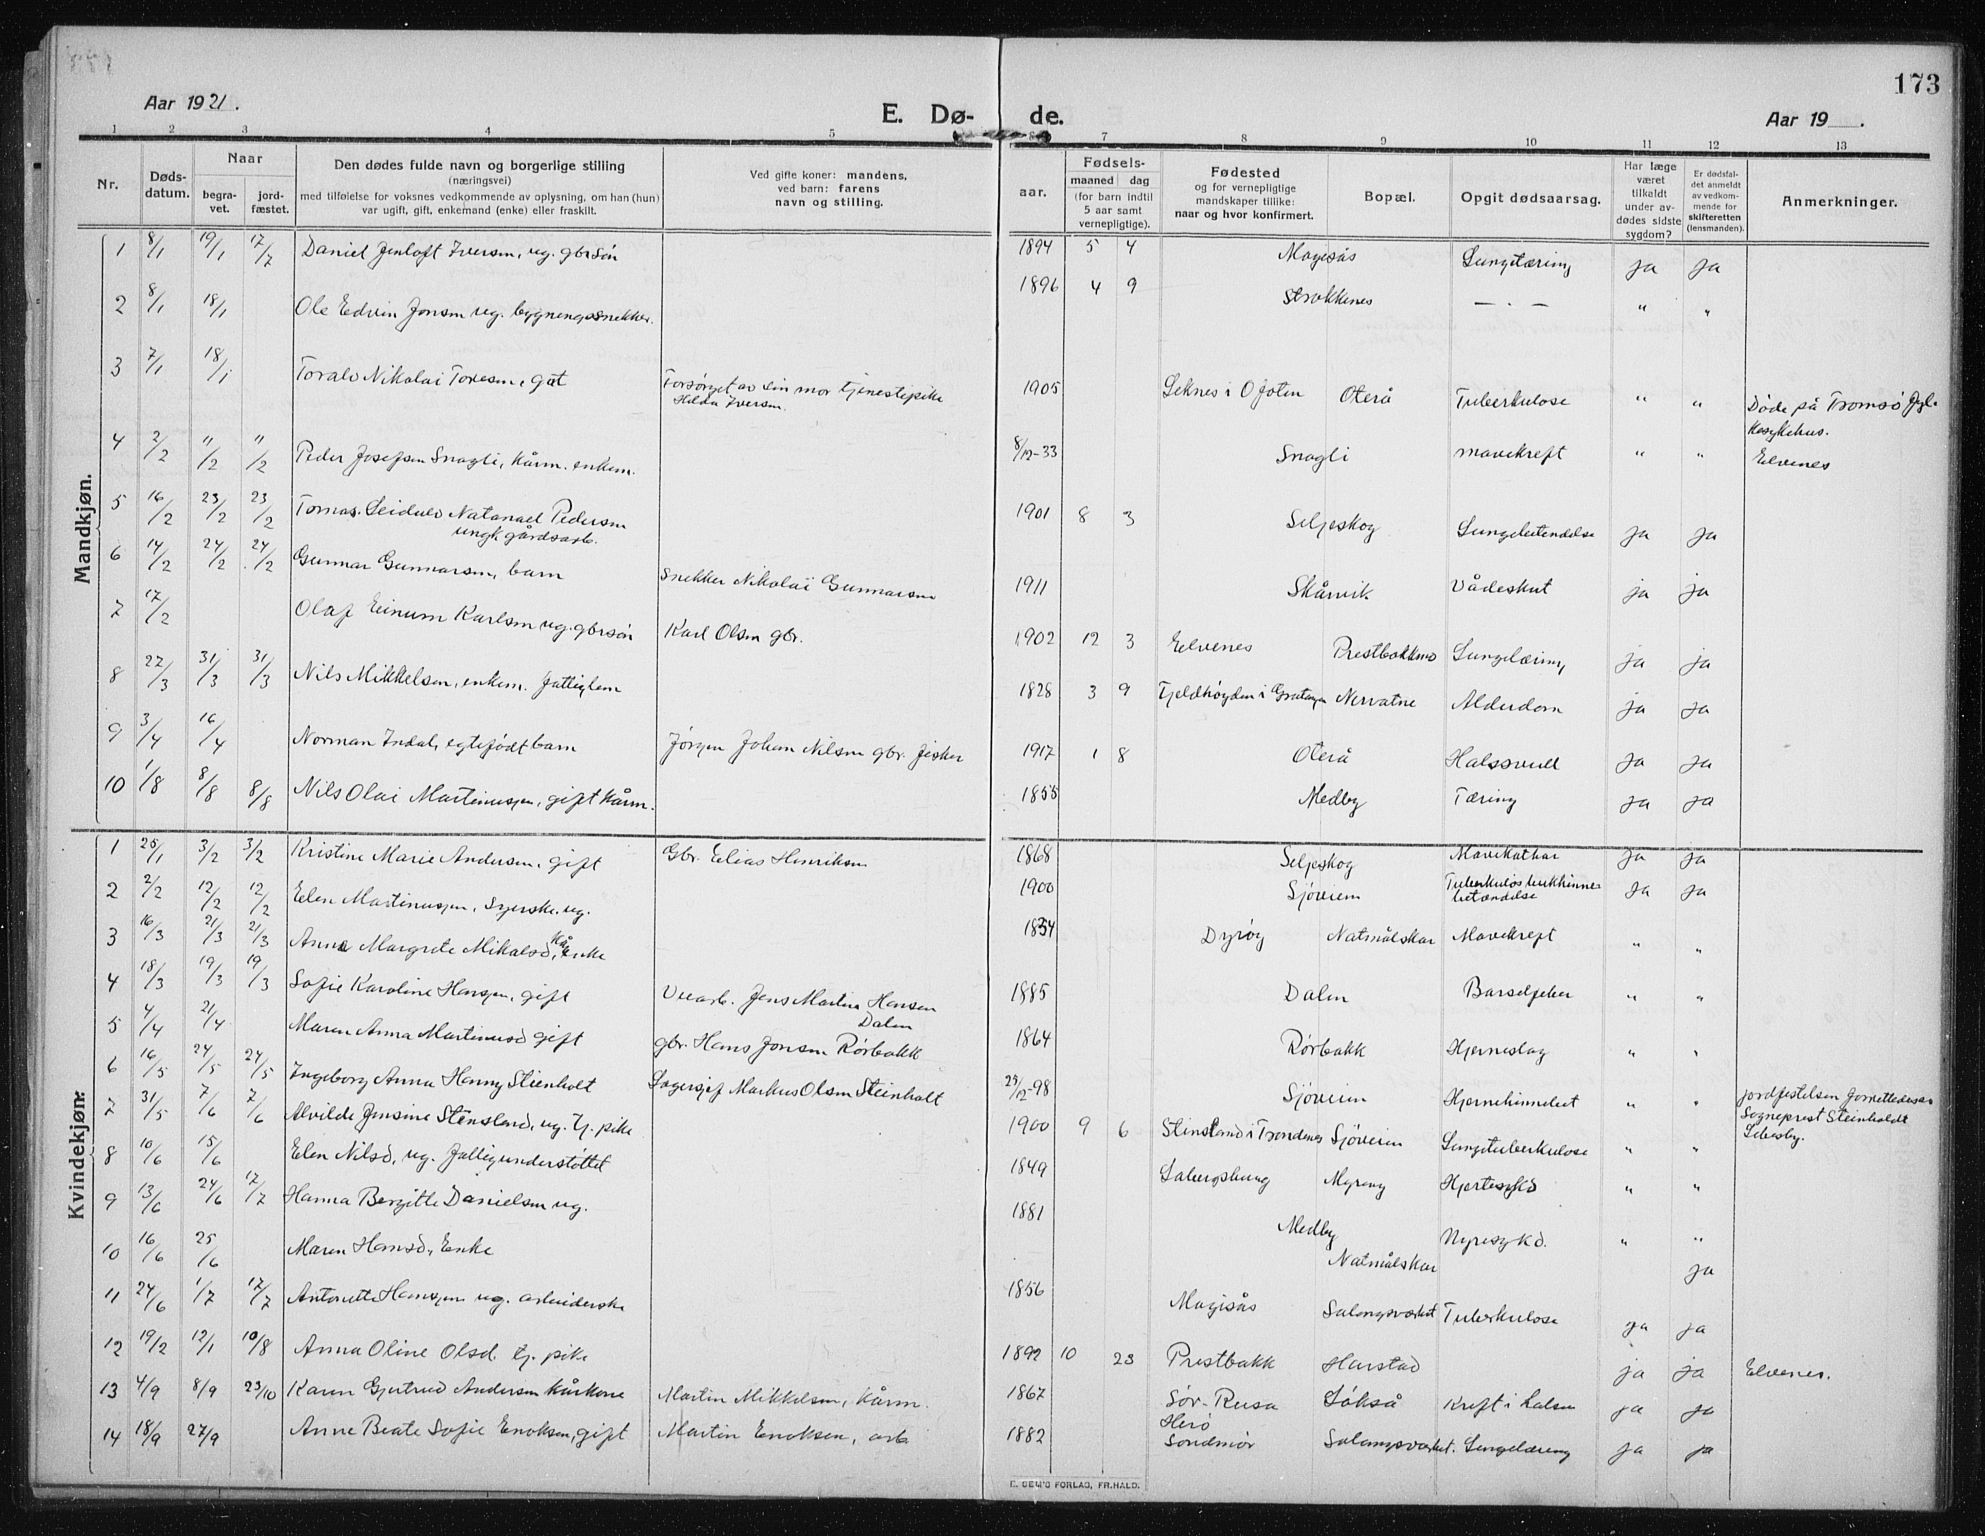 173
Aar 1921.
E. Dø- de.
Aar 19 .
1 2 3 4 5 6 7 8 9 10 11 12 13
Nr.
Dødsdatum.
Naar
begravet.
jordfæstet.
Den dødes fulde navn og borgerlige stilling
(næringsvei)
med tilføielse for voksnes vedkommende av oplysning, om han (hun)
var ugift, gift, enkemand (enke) eller fraskilt.
Ved gifte koner: mandens,
ved barn: farens
navn og stilling.
Fødsels-
aar.
maaned dag
(for barn indtil
5 aar samt
vernepligtige).
Fødested
og for vernepligtige
mandskaper tillike:
naar og hvor konfirmert.
Bopæl.
Opgit dødsaarsag.
Har læge
været
tilkaldt
under av-
dødes sidste
sygdom?
Er dødsfal-
det anmeldt
av vedkom-
mende for
skifteretten
(lensmanden).
Anmerkninger.
Mandkjøn.
1 8/1 19/1 17/7 Daniel Jenloft Iversen, ug. gbrsøn 1894 5 4 Magisås Lungetæring ja ja
2 8/1 18/1 Ole Edvin Jonsen ug. bygningssnekker. 1896 4 9 Strokkenes — . — " "
3 7/1 18/1 Toralv Nikolai Toresen, gut Forsørget av sin mor tjenestepike
Hilda Iversen. 1905 Leknes i Ofoten Oterå Tuberkulose " " Døde på Tromsø
kesykehus.
4 2/2 "/2 "/2 Peder Josefsen Snagli, kårm. enkem. 8/12-33 Snagli mavekreft " " Elvenes
5 16/2 23/2 23/2 Tomas Leidulv Natanael Pedersen
ungk. gårdsarb. 1901 8 3 Seljeskog Lungebetendelse ja ja
6 14/2 24/2 24/2 Gunnar Gunnarsen, barn Snekker Nikolai Gunnarsen 1911 Skårvik Vådeskut ja ja
7 17/2 Olaf Einum Karlsen ug. gbrsøn Karl Olsen gbr. 1902 12 3 Elvenes Prestbakkmo Lungetæring ja ja
8 27/3 31/3 31/3 Nils Mikkelsen, enkem. fattiglem 1828 3 9 Fjeldhøgden i Gratangen Nervatne Alderdom ja ja
9 3/4 16/4 Norman Indal, egtefødt barn Jørgen Johan Nilsen gbr. fisker 1917 1 8 Oterå Halssvull ja ja
10 1/8 8/8 8/8 Nils Olai Martinussen, gift kårm. 1855 Medby Tæring ja ja
Kvindekjøn.
1 25/1 3/2 3/2 Kristine Marie Andersen, gift Gbr. Elias Henriksen 1868 Seljeskog Mavekatar ja ja
2 2/2 12/2 12/2 Elen Martinussen, syerske, ug. 1900 Sjøveien Tuberkuløs bukhinne-
betændelse ja ja
3 16/3 21/3 21/3 Anna Margrete Mikalsd, kå enke 1834 Dyrøy Natmålskar Mavekreft " "
4 18/3 19/3 19/3 Sofie Karoline Hansen, gift Veiarb. Jens Martin Hansen
Dalen 1885 Dalen Barselfeber " "
5 4/4 21/4 Maren Anna Martinusd gift gbr. Hans Jonsen Rørbakk 1864 Rørbakk Hjerneslag " "
6 16/5 24/5 24/5 Ingeborg Anna Henny Steenholt Lagersjef Markus Olsen Steinholt 25/12-98 Sjøveien Hjernehinnebet " " jordfestelsen forrettedes av
Sogneprest Steinholdt
Lebesby.
7 31/5 7/6 7/6 Alvilde Jensine Stensland, ug. tj. pike 1900 9 6 Stensland i Trondenes Sjøveien Lungetuberkulose " "
8 10/6 15/6 Elen Nilsd, ug. fattigunderstøttet 1849 Salangsbung Myreng Hjertesykd " "
9 13/6 24/6 17/7 Hanna Bergitte Danielsen ug. 1881 Medby Nyresykd. " "
10 16/6 25/6 Maren Hansd, Enke Natmålskar ja
11 24/6 1/7 17/7 Antonette Hanssen ug. arbeiderske 1856 Magisås Salangsverket Tuberkulose ja ja
12 19/2 12/1 10/8 Anna Oline Olsd. tj. pike 1892 10 23 Prestbakk Harstad ja ja Elvenes.
13 4/9 8/9 23/10 Karen Gjertrud Andersen kårkone Martin Mikkelsen, kårm. 1867 Sør-Reisa Løkså Kreft i halsen ja ja
14 18/9 27/9 Anne Beate Sofie Enoksen, gift Martin Enoksen, arb 1882 Herø
Søndmør Salangsverket. Lungetæring ja ja
E. SEM'S FORLAG, FR.HALD.